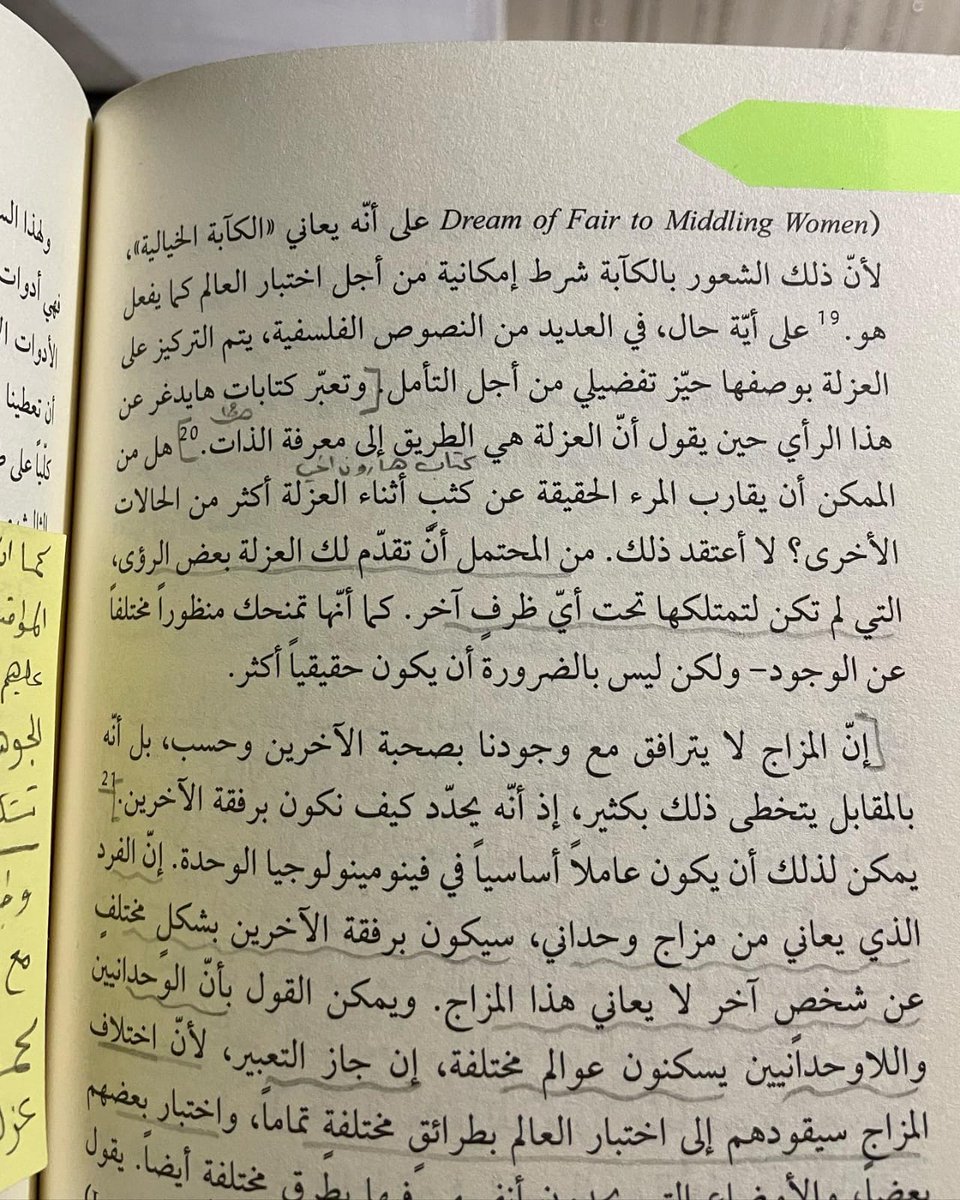 (Dream of Fair to Middling Women على أنّه يعاني «الكآبة الخيالية»،
لأنّ ذلك الشعور بالكآبة شرط إمكانية من أجل اختبار العالم كما يفعل
هو.19 على أيّة حال، في العديد من النصوص الفلسفية، يتم التركيز على
العزلة بوصفها حيّز تفضيلي من أجل التأمل. وتعبّر كتابات هايدغر عن
هذا الرأي حين يقول أنّ العزلة هي الطريق إلى معرفة الذات.20 هل من
الممكن أن يقارب المرء الحقيقة عن كثب أثناء العزلة أكثر من الحالات
الأخرى؟ لا أعتقد ذلك. من المحتمل أنَّ تقدّم لك العزلة بعض الرؤى،
التي لم تكن لتمتلكها تحت أيّ ظرفٍ آخر. كما أنّها تمنحك منظوراً مختلفاً
عن الوجود– ولكن ليس بالضرورة أن يكون حقيقياً أكثر.
إنّ المزاج لا يترافق مع وجودنا بصحبة الآخرين وحسب، بل أنّه
بالمقابل يتخطى ذلك بكثير، إذ أنّه يحدّد كيف نكون برفقة الآخرين.21
يمكن لذلك أن يكون عاملاً أساسياً في فينومينولوجيا الوحدة. إنّ الفرد
الذي يعاني من مزاج وحداني، سيكون برفقة الآخرين بشكلٍ مختلفٍ
عن شخصٍ آخر لا يعاني هذا المزاج. ويمكن القول بأنّ الوحدانيين
واللاوحدانيين يسكنون عوالم مختلفة، إن جاز التعبير، لأنّ اختلاف
المزاج سيقودهم إلى اختبار العالم بطرائقٍ مختلفةٍ تماماً، واختبار بعضهم
بعضاً، والأوضاع التي يجدون أنفسهم فيها بطرق مختلفة أيضاً. يقول
ولهذا
فهي أدوات
الأدوات
أن تعطينا
كلّياً على
كما
مع